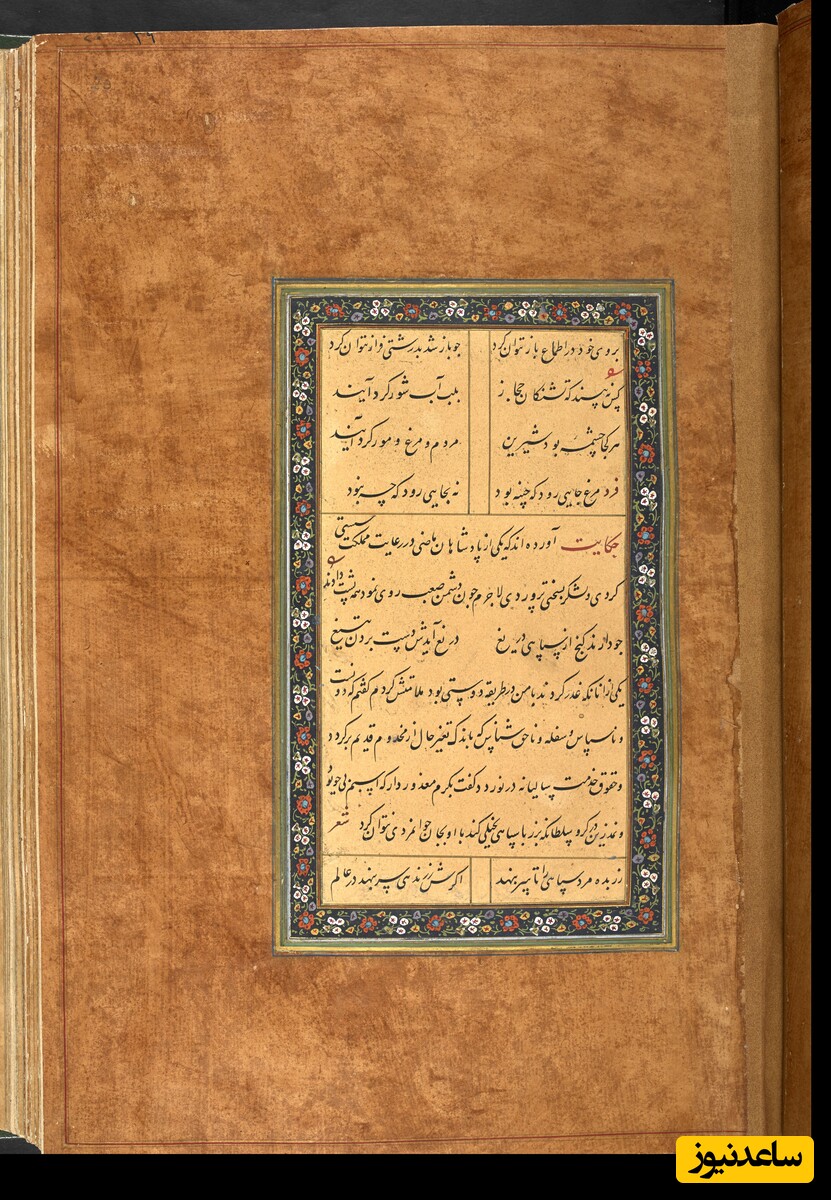 بروی خود در اطماع باز نتوان کرد چو باز شد بدرشتی فراز نتوان کرد
کس نبیند که تشنگان حجاز بلب آب شور گرد آیند
هر کجا چشمه بود شیرین مردم و مرغ و مور گرد آیند
فرد مرغ جایی رود که چینه بود نه بجایی رود که چه نبود
حکایت آورده اند که یکی از پادشاهان ماضی در رعایت مملکت سستی
کردی و لشکر بسختی پروردی لاجرم چون دشمن صعب روی نمود همه پشت دادند
چو دارند گنج از سپاهی دریغ دریغ آیدش دست بردن بتیغ
یکی از آنانکه غدر کردند با من در طریقه دوستی بود ملامتش کردم گفتم که دونست
و ناسپاس و سفله و ناحق شناس که باندک تغیر حال از مخدوم قدیم برگردد
و حقوق خدمت سالیانه در نوردد گفت بکرم معذور دار که اسبم بی جو بود
و نمد زین در گرو سلطان که بزر با سپاهی بخیلی کند با او بجان جوانمردی نتوان کرد شعر
زر بده مرد سپاهی را تا سر بنهد اگرش زر ندهی سر بنهد در عالم
ساعدنیوز